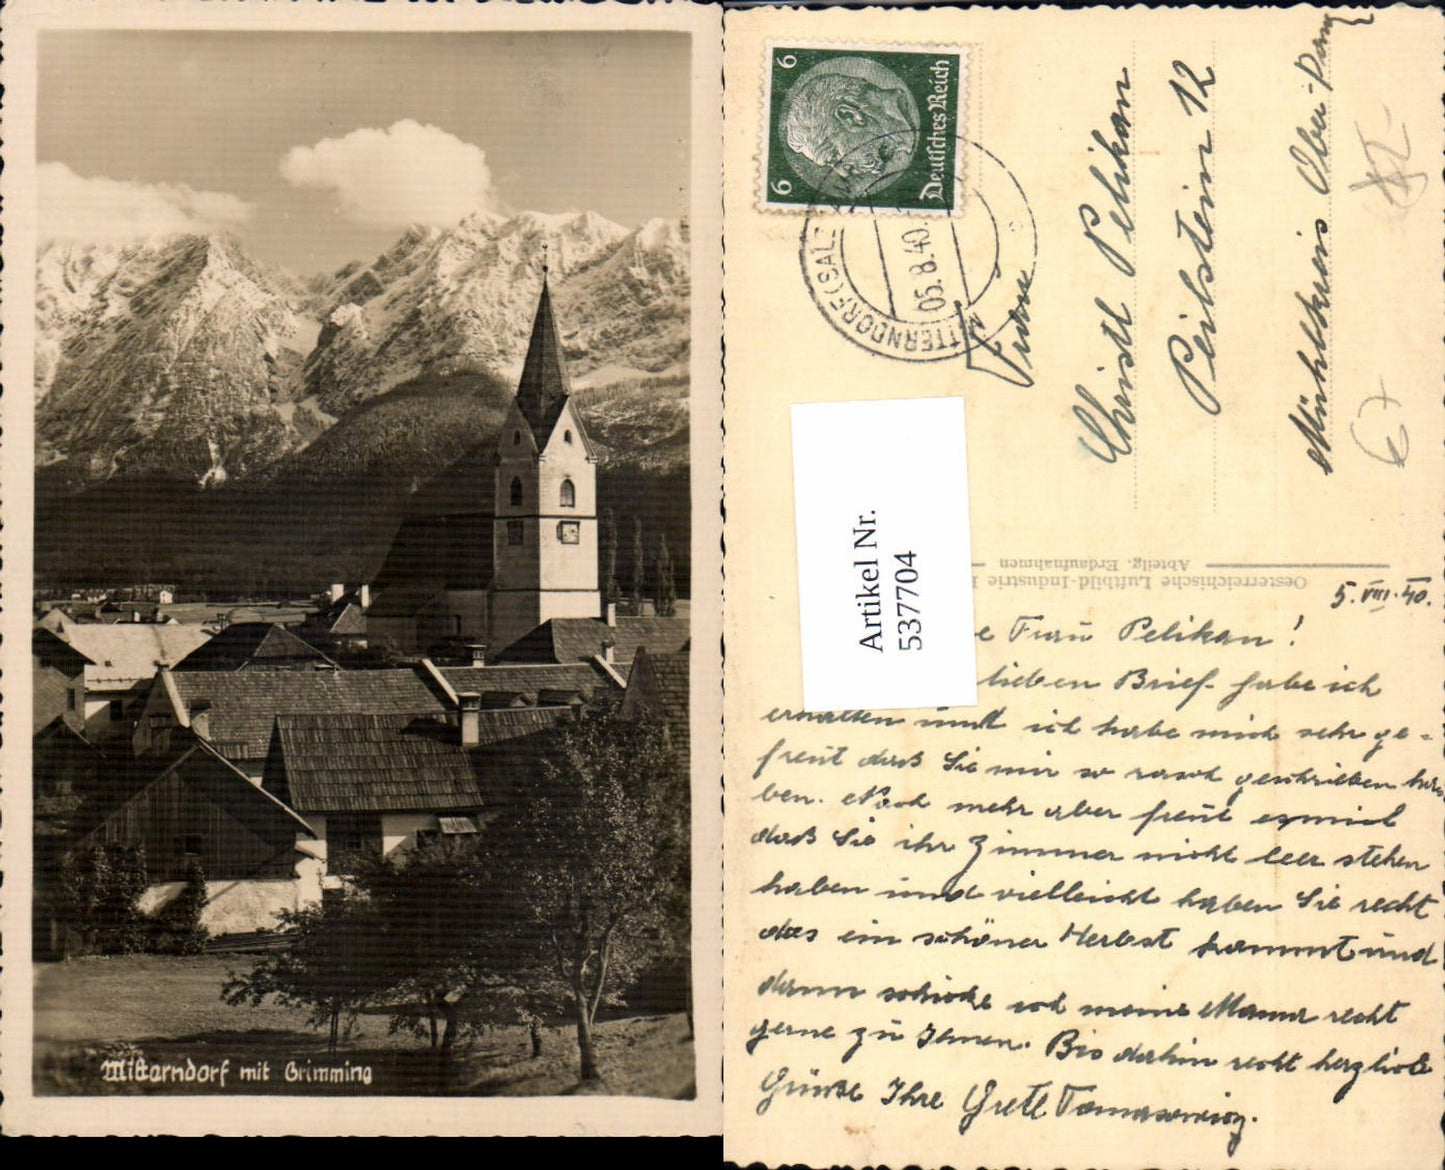 Mitterndorf mit Grimming
6
6
Deutsches Reich
TTERNDORF (SALZ
05.8.40.
Frau
Christl Pelikan
Peilstein 12
Mühlkreis Ober-Donau
Artikel Nr.
537704
Oesterreichische Luftbild-Industrie
Abteilg. Erdaufnahmen
5. VIII. 40.
e Frau Pelikan!
lieben Brief habe ich
erhalten und ich habe mich sehr ge-
freut daß Sie mir so rasch geschrieben ha
ben. Noch mehr aber freut es mich
daß Sie ihr Zimmer nicht leer stehen
haben und vielleicht haben Sie recht
das ein schöner Herbst kommt und
dann schicke ich meine Mama recht
gerne zu Ihnen. Bis dahin recht herzliche
Grüße Ihre Grete